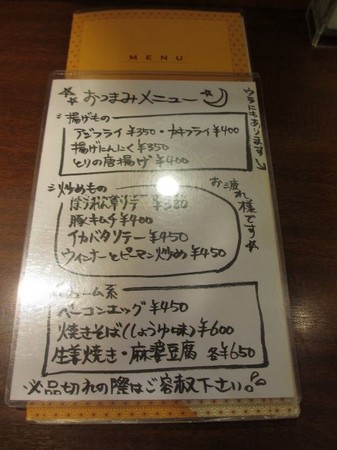 MENU
☆おつまみメニュー
ウラにもあります
※揚げもの
アジフライ ¥350・カキフライ ¥400
揚げにんにく ¥350
とりの唐揚げ ¥400
お疲れ様です☆
※炒めもの
ほうれん草ソテー
豚キムチ ¥400
イカバタソテー ¥450
ウィンナーとピーマン炒め ¥450
ベーコンエッグ ¥450
焼きそば(しょうゆ味) ¥600
生姜焼き・麻婆豆腐 各¥650
※品切れの際はご容赦下さい。